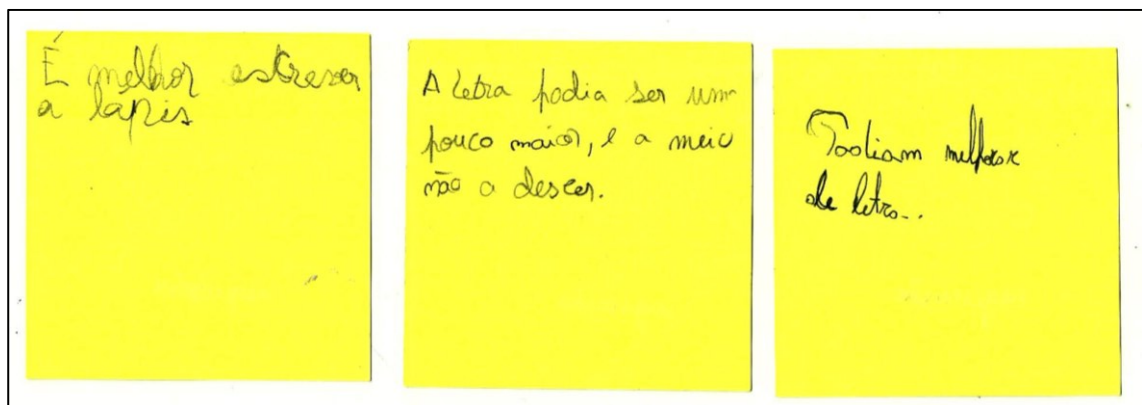 É melhor escrever
a lápis
A letra podia ser um
pouco maior, e a meio
não a descer.
Podiam melhorar
de letra...